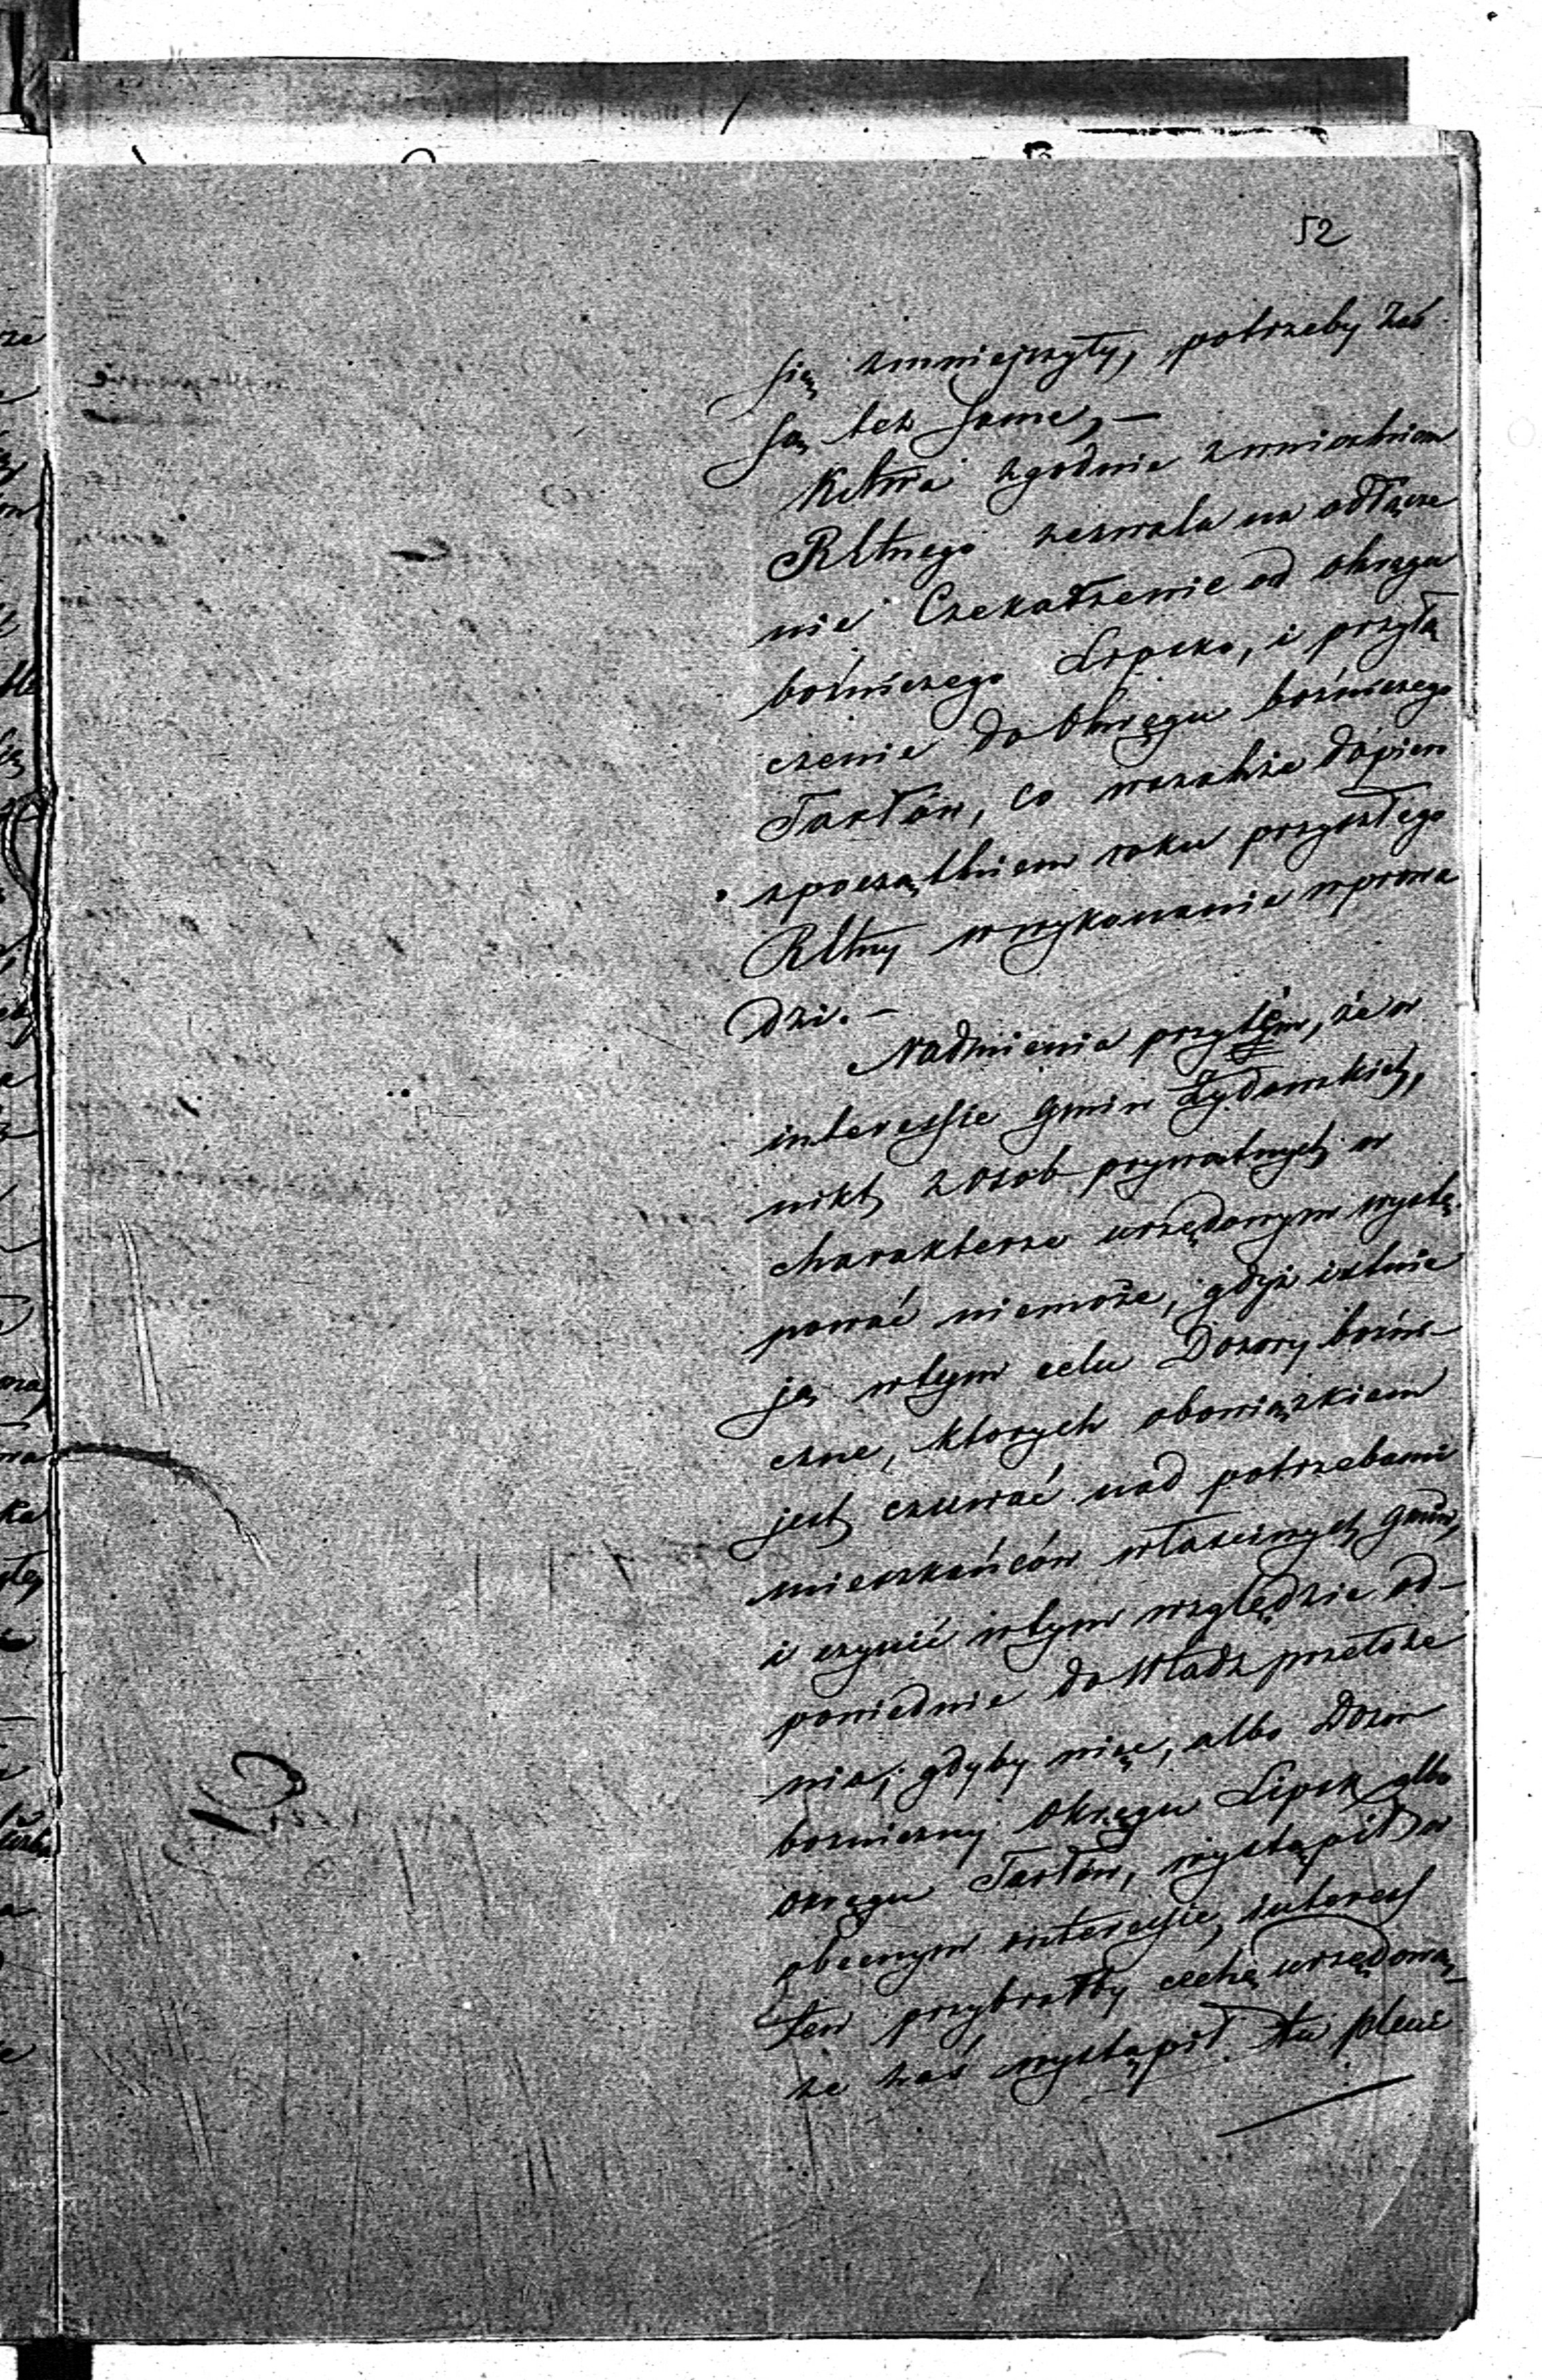 52
się zmniejszyły, potrzeby zaś
są też same, —
zgodnie z wnioskiem
zezwala na odłącze
nie Czekarzewic od okręgu
bóżniczego Lipsko, i przyłą
czenie do Okręgu bóżniczego
Tarłów, co wszakże dopiero
z początkiem roku przyszłego
w wykonanie wprowa
dzi. —
Nadmienia przytém, że w
interessie Gmin Żydowskich,
nikt z osob prywatnych w
charakterze urzędowym wystę
pować niemoże, gdyż istnie
ją wtym celu Dozory bóżni-
czne, ktorych obowiązkiem
jest czuwać nad potrzebami
mieszkańców właściwych Gmin,
i czynić wtym względzie od-
powiednie do Władz przełoże
nia; gdyby więc, albo Dozor
bozniczny Okręgu Lipsk albo
okręgu Tarłów, wystąpił w
obecnym interessie, interess
ten przybrałby cechę urzędową,
że zaś wystąpił tu